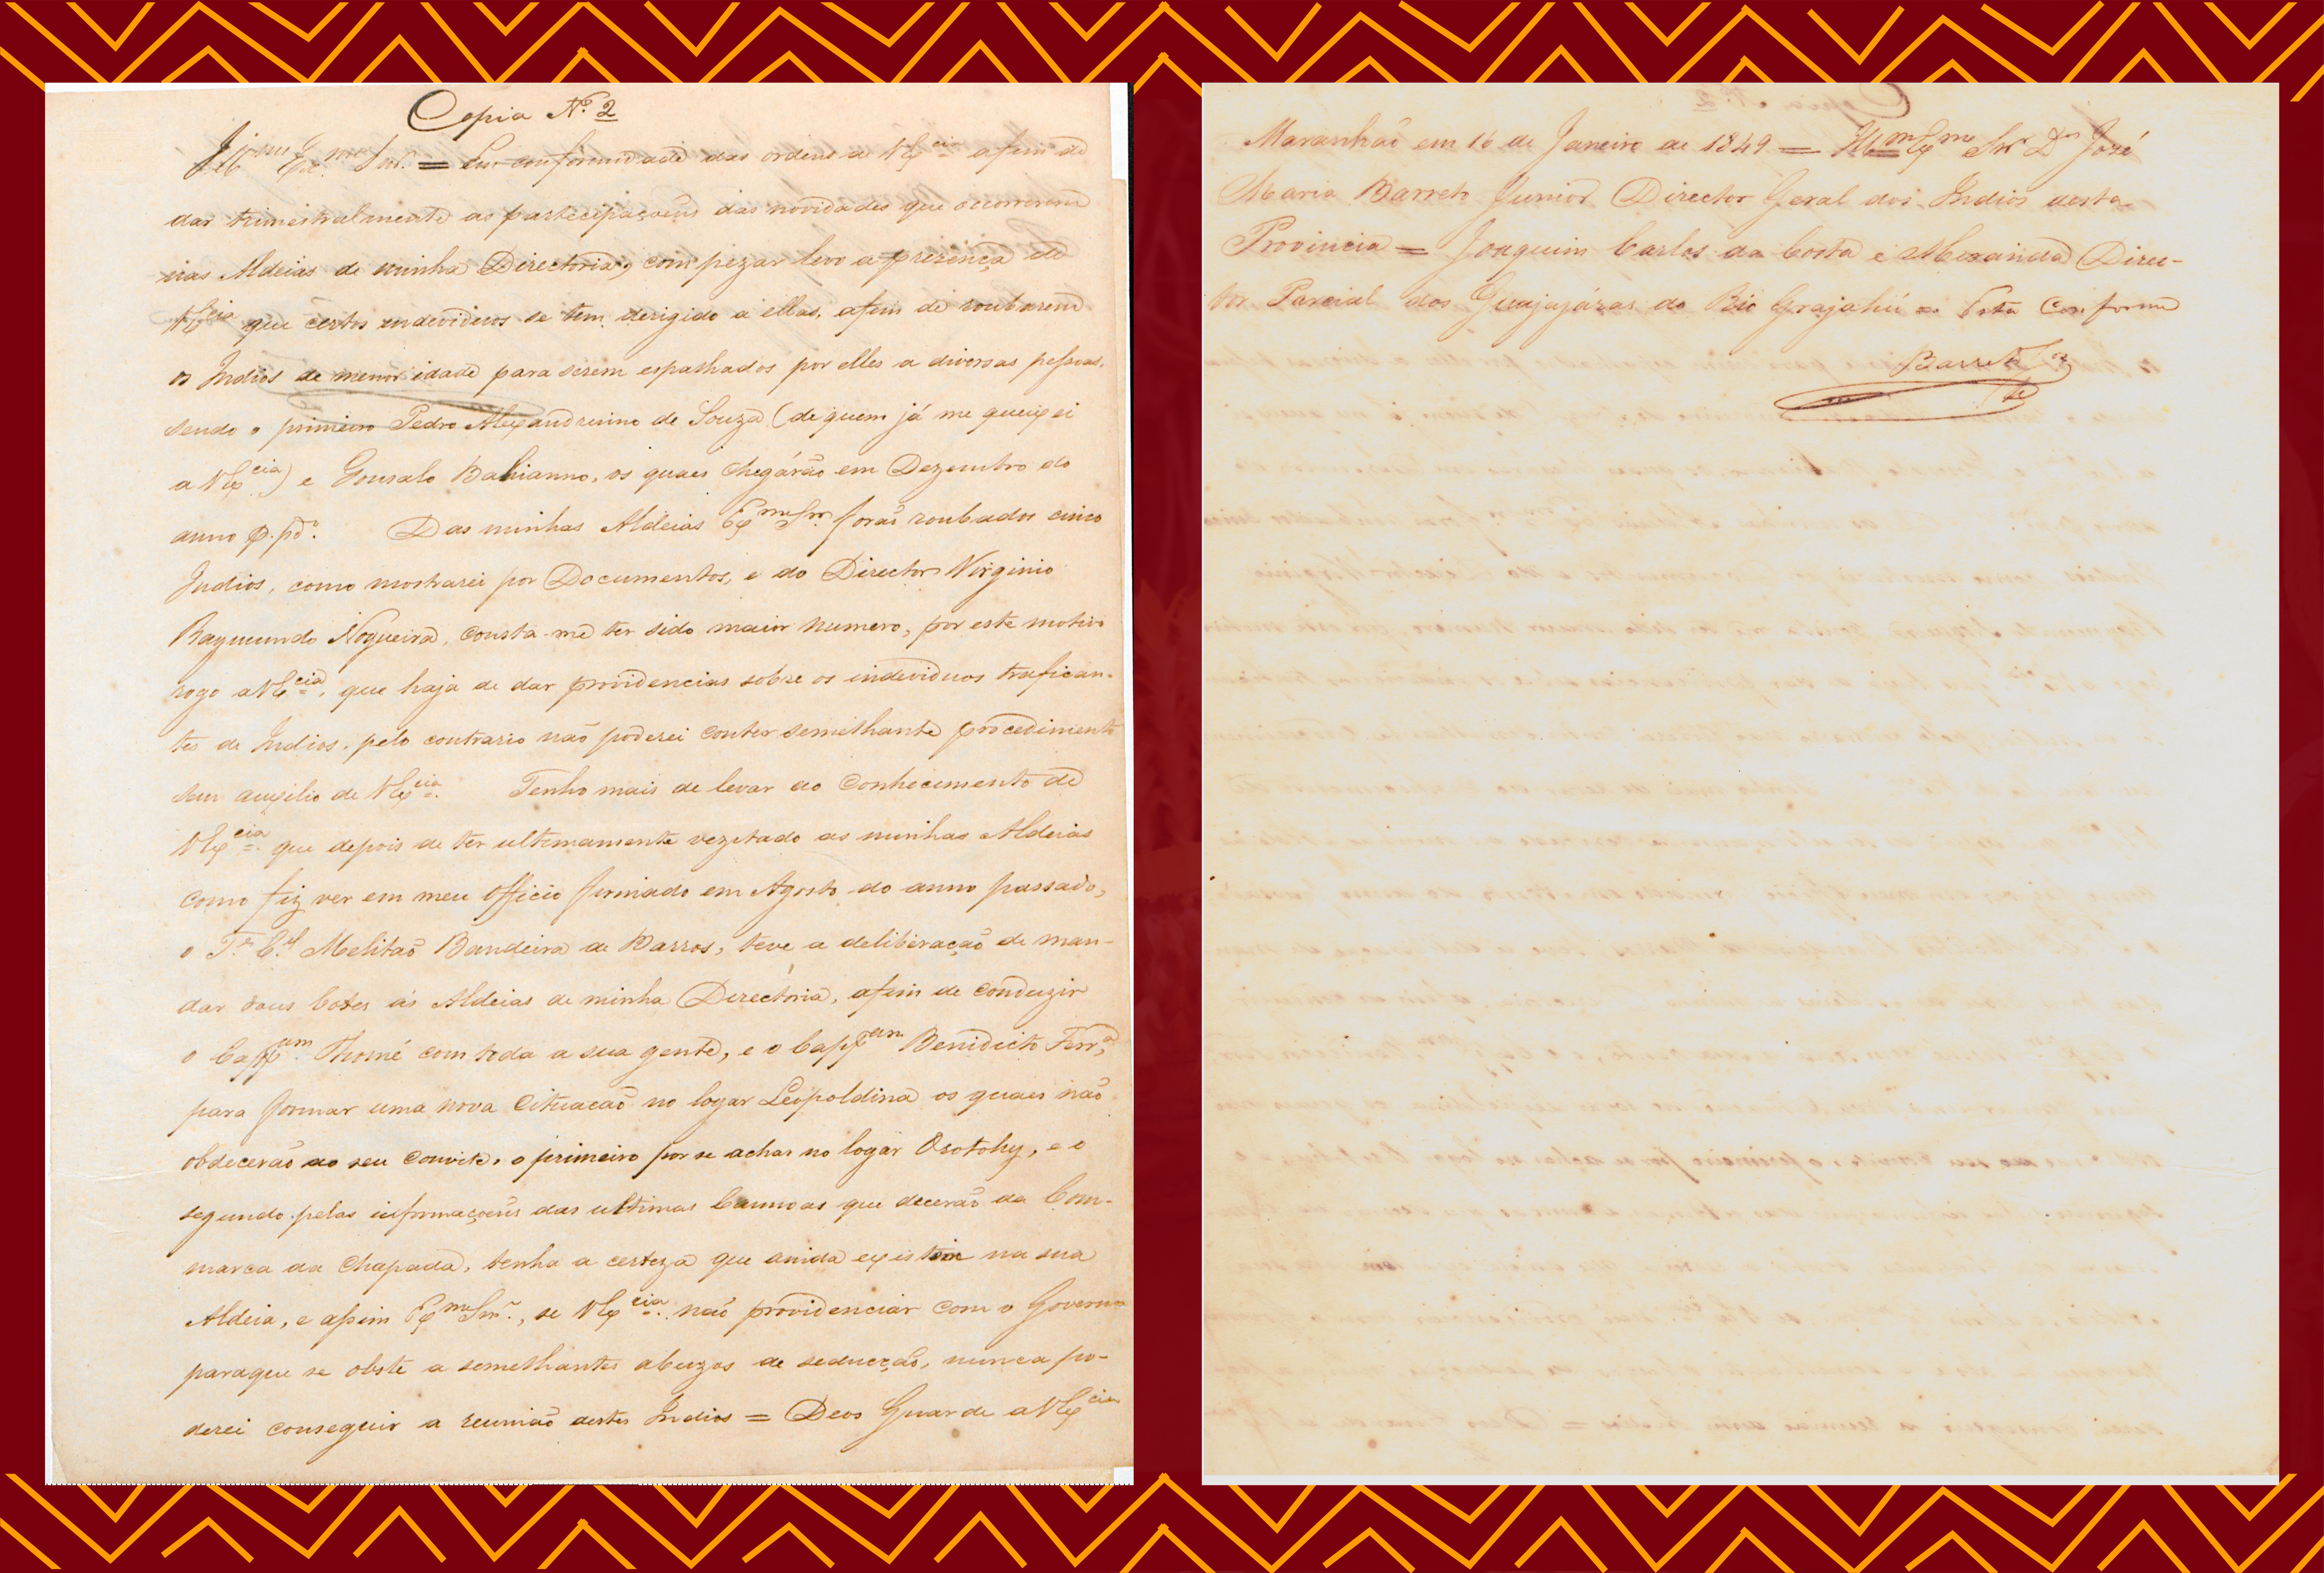 Copia N.º 2
Ill.mo Ex.mo Snr. = Em conformidade das ordens de V Ex.cia afim de
dar trimestralmente as partecipaçoens das novidades que occorrerem
nas Aldeias de minha Directoria, com pezar levo a prezença de
V Ex.cia que certos endeviduos se tem derigido a ellas, afim de roubarem
os Indios de menor idade para serem espalhados por elles a diversas pessoas,
sendo o primeiro Pedro Alexandrino de Souza (de quem já me queixei
a V Ex.cia) e Gonsalo Bahianno, os quaes chegárão em Dezembro do
anno p. pdº. Das minhas Aldeias Ex.mo Snr. forão roubados cinco
Indios, como mostrarei por Documentos, e do Director Virginio
Raymundo Nogueira, consta-me ter sido maior numero, por este motivo
rogo a V Ex.cia, que haja de dar providencias sobre os individuos trafican-
tes de Indios, pelo contrario não poderei conter semelhante procedimento
sem auxilio de V Ex.cia. Tenho mais de levar ao conhecimento de
V Ex.cia que depois de ter ultimamente vezetado as minhas Aldeias
como fiz ver em meu Officio firmado em Agosto do anno passado,
o T.e C.el Melitão Bandeira de Barros, teve a deliberação de man-
dar dous botes ás Aldeias de minha Directoria, afim de conduzir
o Capp.am Thomé com toda a sua gente, e o Capp.am Benidicto Ferr.a,
para formar uma nova Cituacão no logar Leopoldina os quaes não
obdecerão ao seu convite, o primeiro por se achar no logar Osotohy, e o
segundo pelas informaçoens das ultimas Cannoas que decerão da Com-
marca da Chapada, tenha a certeza que ainda existem na sua
Aldeia, e assim Ex.mo Snr., se V Ex.cia não providenciar com o Governo
paraque se obste a semelhantes abuzos de seducção, nunca po-
derei conseguir a reunião destes Indios = Deos Guarde a V Ex.cia
Maranhão em 16 de Janeiro de 1849 = Ill.mo Ex.mo Snr D.or José
Maria Barreto Junior Director Geral dos Indios desta
Provincia = Joaquim Carlos da Costa e Direc-
tor Parcial dos Guajajáras do Rio Grajahú = Está conforme
Barreto J.or